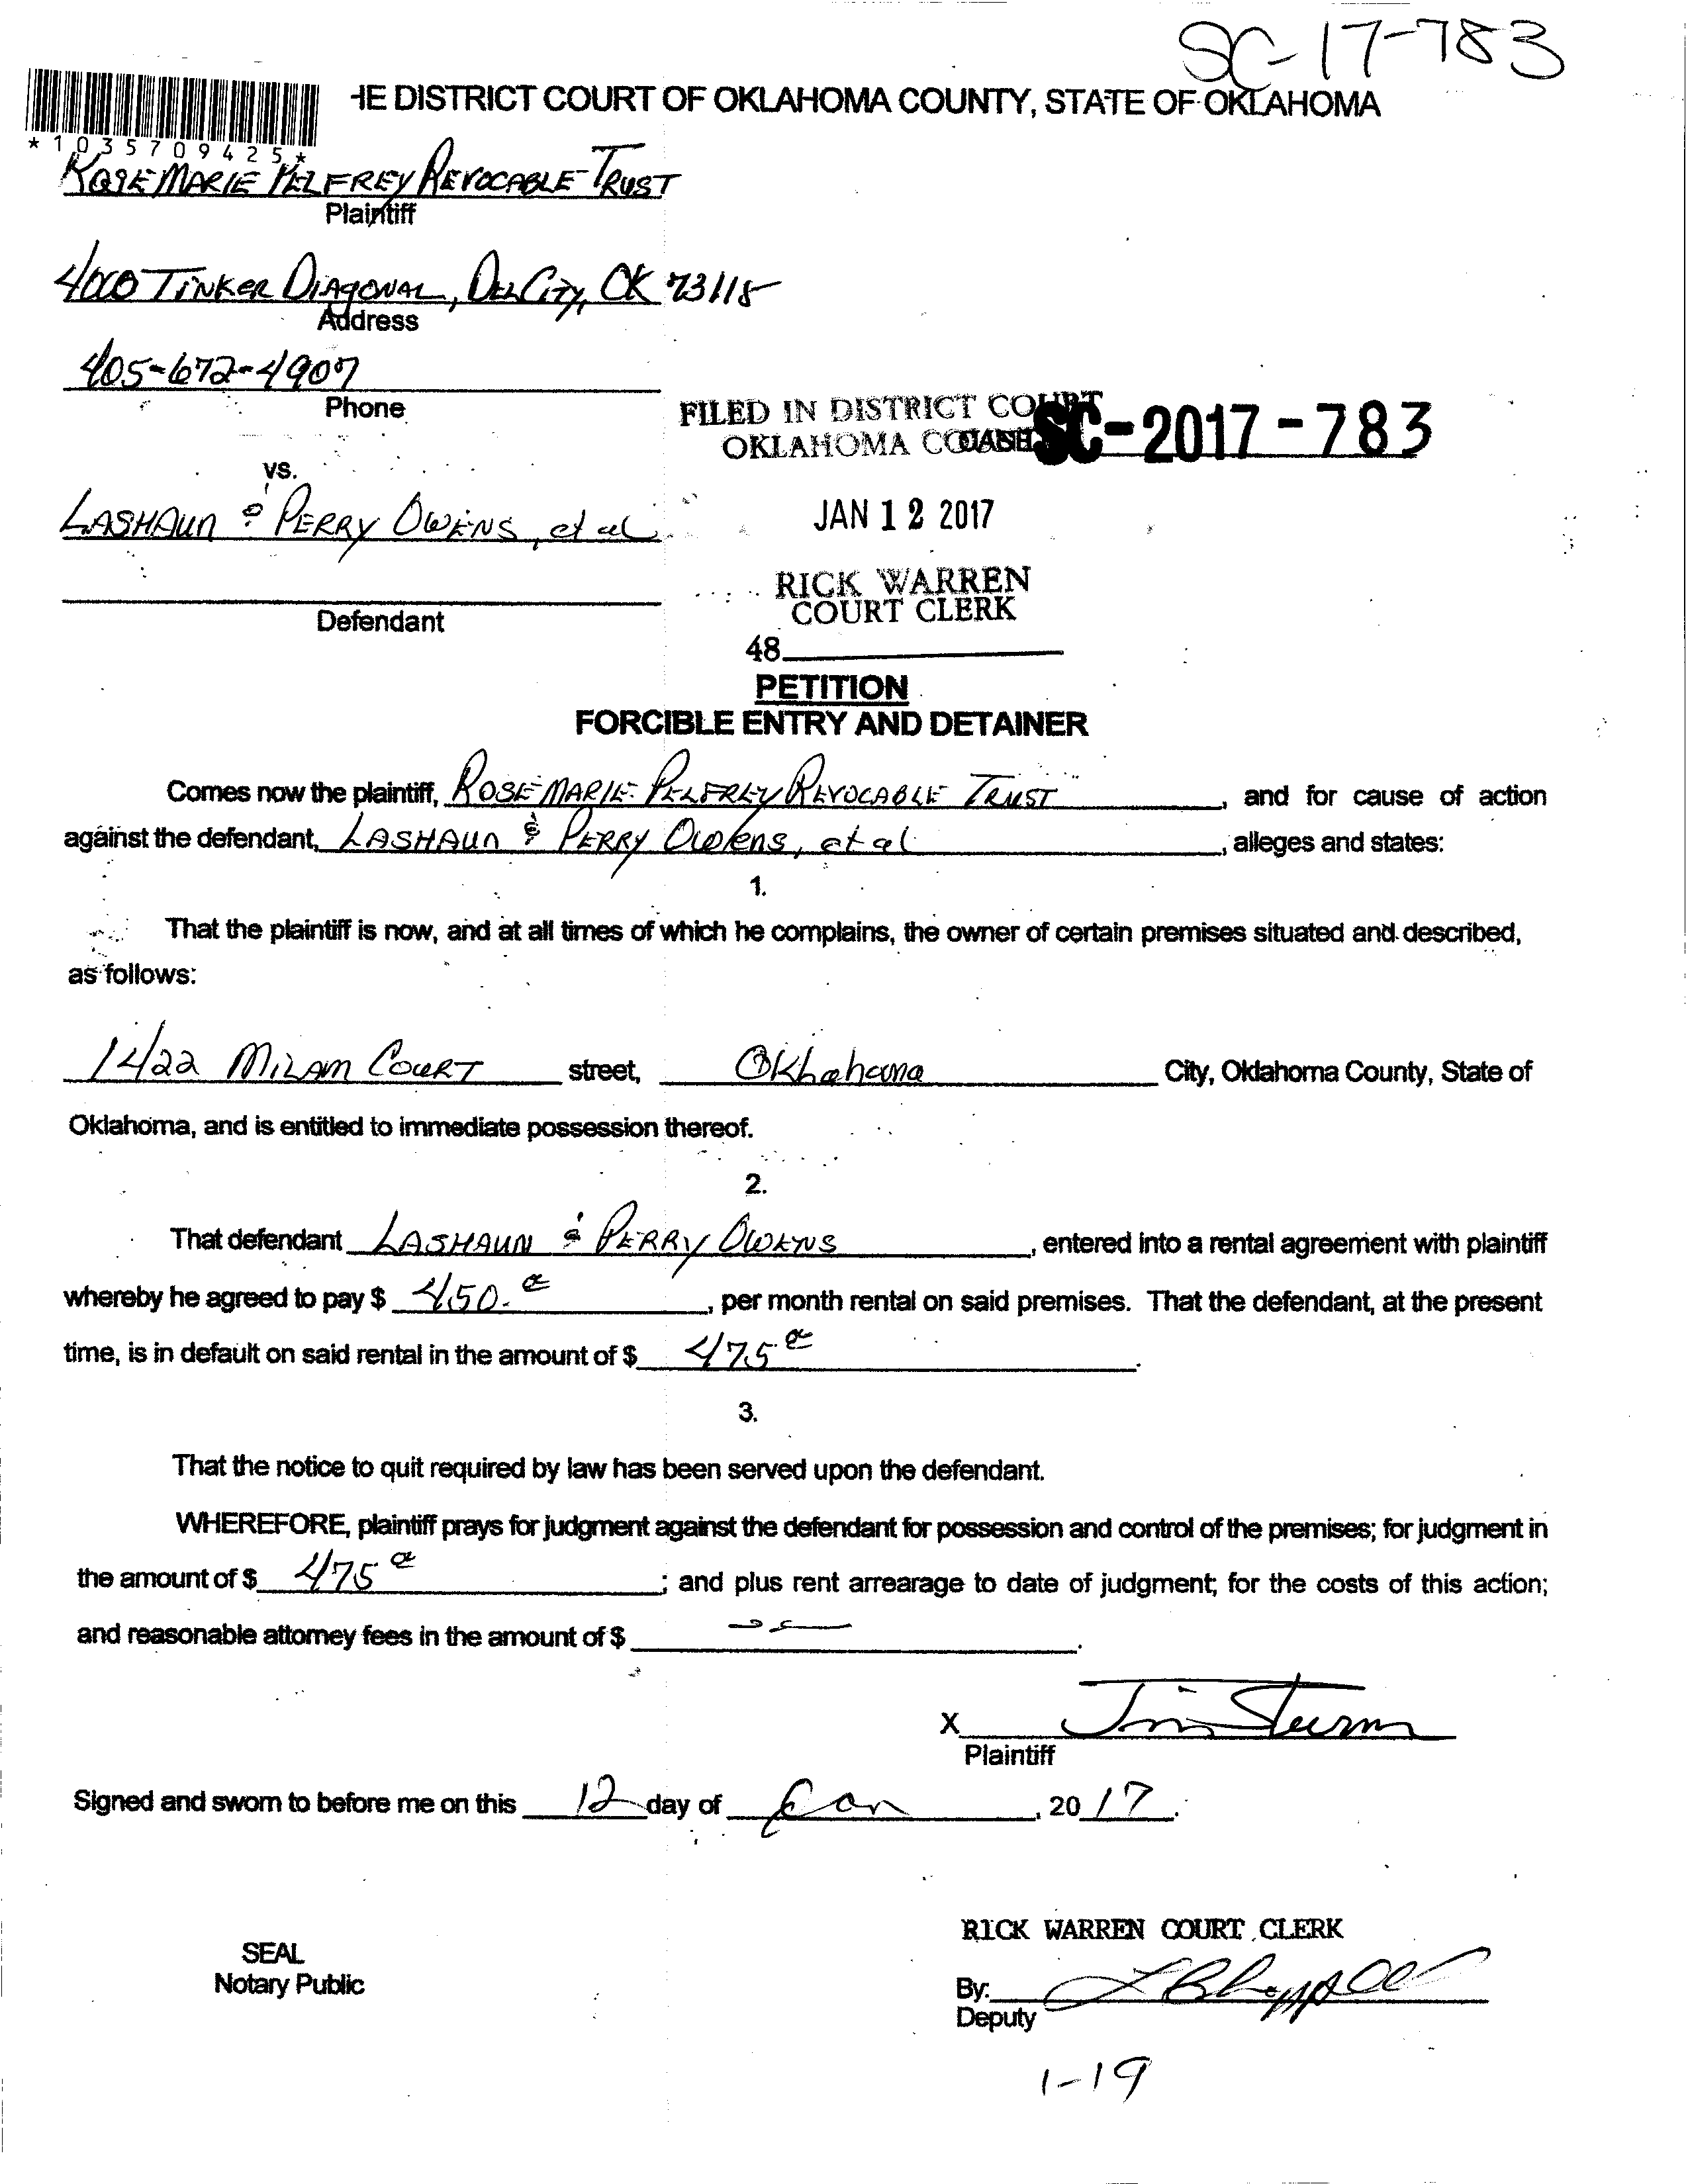 SC-17-783
HE DISTRICT COURT OF OKLAHOMA COUNTY, STATE OF OKLAHOMA
*1035709425*
ROSE MARIE PELFREY REVOCABLE TRUST
Plaintiff
4000 TINKER DIAGONAL, DEL CITY, OK 73115
Address
405-672-4907
Phone
FILED IN DISTRICT COURT
OKLAHOMA CASE SC-2017-783
vs.
LASHAUN & PERRY OWENS, et al
JAN 12 2017
RICK WARREN
COURT CLERK
Defendant
48
PETITION
FORCIBLE ENTRY AND DETAINER
Comes now the plaintiff, ROSE MARIE PELFREY REVOCABLE TRUST, and for cause of action
against the defendant, LASHAUN & PERRY OWENS, et al, alleges and states:
1.
That the plaintiff is now, and at all times of which he complains, the owner of certain premises situated and described,
as follows:
1422 MILAM COURT street, Oklahoma City, Oklahoma County, State of
Oklahoma, and is entitled to immediate possession thereof.
2.
That defendant LASHAUN & PERRY OWENS, entered into a rental agreement with plaintiff
whereby he agreed to pay $ 450., per month rental on said premises. That the defendant, at the present
time, is in default on said rental in the amount of $ 475.
3.
That the notice to quit required by law has been served upon the defendant.
WHEREFORE, plaintiff prays for judgment against the defendant for possession and control of the premises; for judgment in
the amount of $ 475; and plus rent arrearage to date of judgment; for the costs of this action;
and reasonable attorney fees in the amount of $.
X Jim Sturm
Plaintiff
Signed and sworn to before me on this 12 day of Jan, 2017.
RICK WARREN COURT CLERK
SEAL
Notary Public
By:
Deputy
1-19